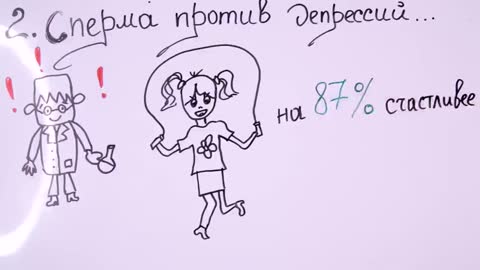 2. Сперма против депрессий...
на 87% счастливее